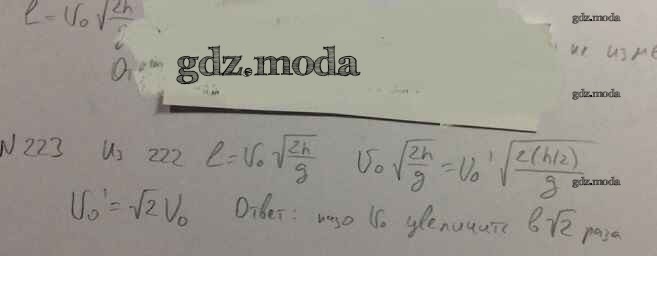 l = V₀ √2h/g
gdz.moda
не изме
Ответ
gdz.moda
gdz.moda
N 223 Из 222 l = V₀ √2h/g V₀ √2h/g = V₀' √2(h/2)/g
gdz.moda
V₀' = √2 V₀ Ответ: надо V₀ увеличить в √2 раза